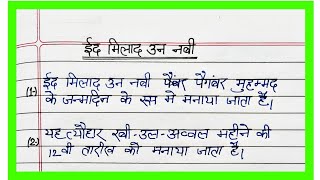 ईद मिलाद उन नबी
(1) ईद मिलाद उन नबी पैंबर पैगंबर मुहम्मद
के जन्मदिन के रूप मे मनाया जाता है।
(2) यह त्यौहार रबी-उल-अव्वल महीने की
12वी तारीख को मनाया जाता है।